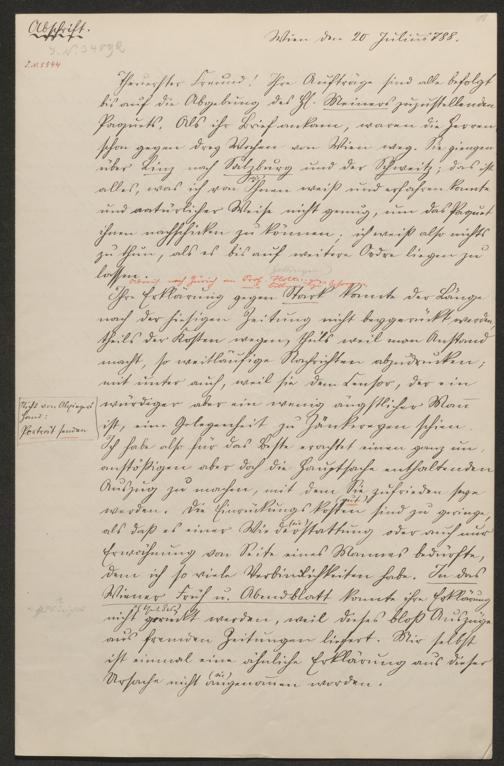 Abschrift.
Wien den 20 Julius 788.
I.N. 5544
Theuerster Freund! Ihre Aufträge sind alle befolgt
bis auf die Abgebung des H. Meiners zuzustellenden
Paquets. Als ihr Brief ankam, waren die Herren
schon gegen drey Wochen von Wien weg. Sie giengen
über Linz nach Salzburg und der Schweitz; das ist
alles, was ich von Ihnen weiß und erfahren konnte
und natürlicher Weise nicht genug, um das Paquet
ihnen nachschicken zu können; ich weiß also nichts
zu thun, als es bis auf weitere Ordre liegen zu
lassen.
nach Zürich an Prof.
Ihre Erklärung gegen Stark konnte der Länge
nach der hiesigen Zeitung nicht beygerückt werden,
theils der Kosten wegen, theils weil man Anstand
macht, so weitläufige Nachrichten abzudrucken;
mit unter auch, weil sie dem Censor, der ein
würdiger aber ein wenig ängstlicher Man
ist, eine Gelegenheit zu Zänkereyen schien.
Nicht von Alxingers
Hand:
Portrait senden
Ich habe also für das Beste erachtet einen ganz un-
anstößigen aber doch die Hauptsache enthaltenden
Auszug zu machen, mit dem Sie zufrieden seyn
werden. Die Einrückungskosten sind zu geringe,
als daß es einer Wiedererstattung oder auch nur
Erwähnung von Seite eines Mannes bedürfte,
dem ich so viele Verbindlichkeiten habe. In das
Wiener Früh u. Abendblatt konnte ihre Erklärung
nicht gerückt werden, weil dieses bloß Auszüge
aus fremden Zeitungen liefert. Mir selbst
ist einmal eine ähnliche Erklärung aus dieser
Ursache nicht angenomen worden.